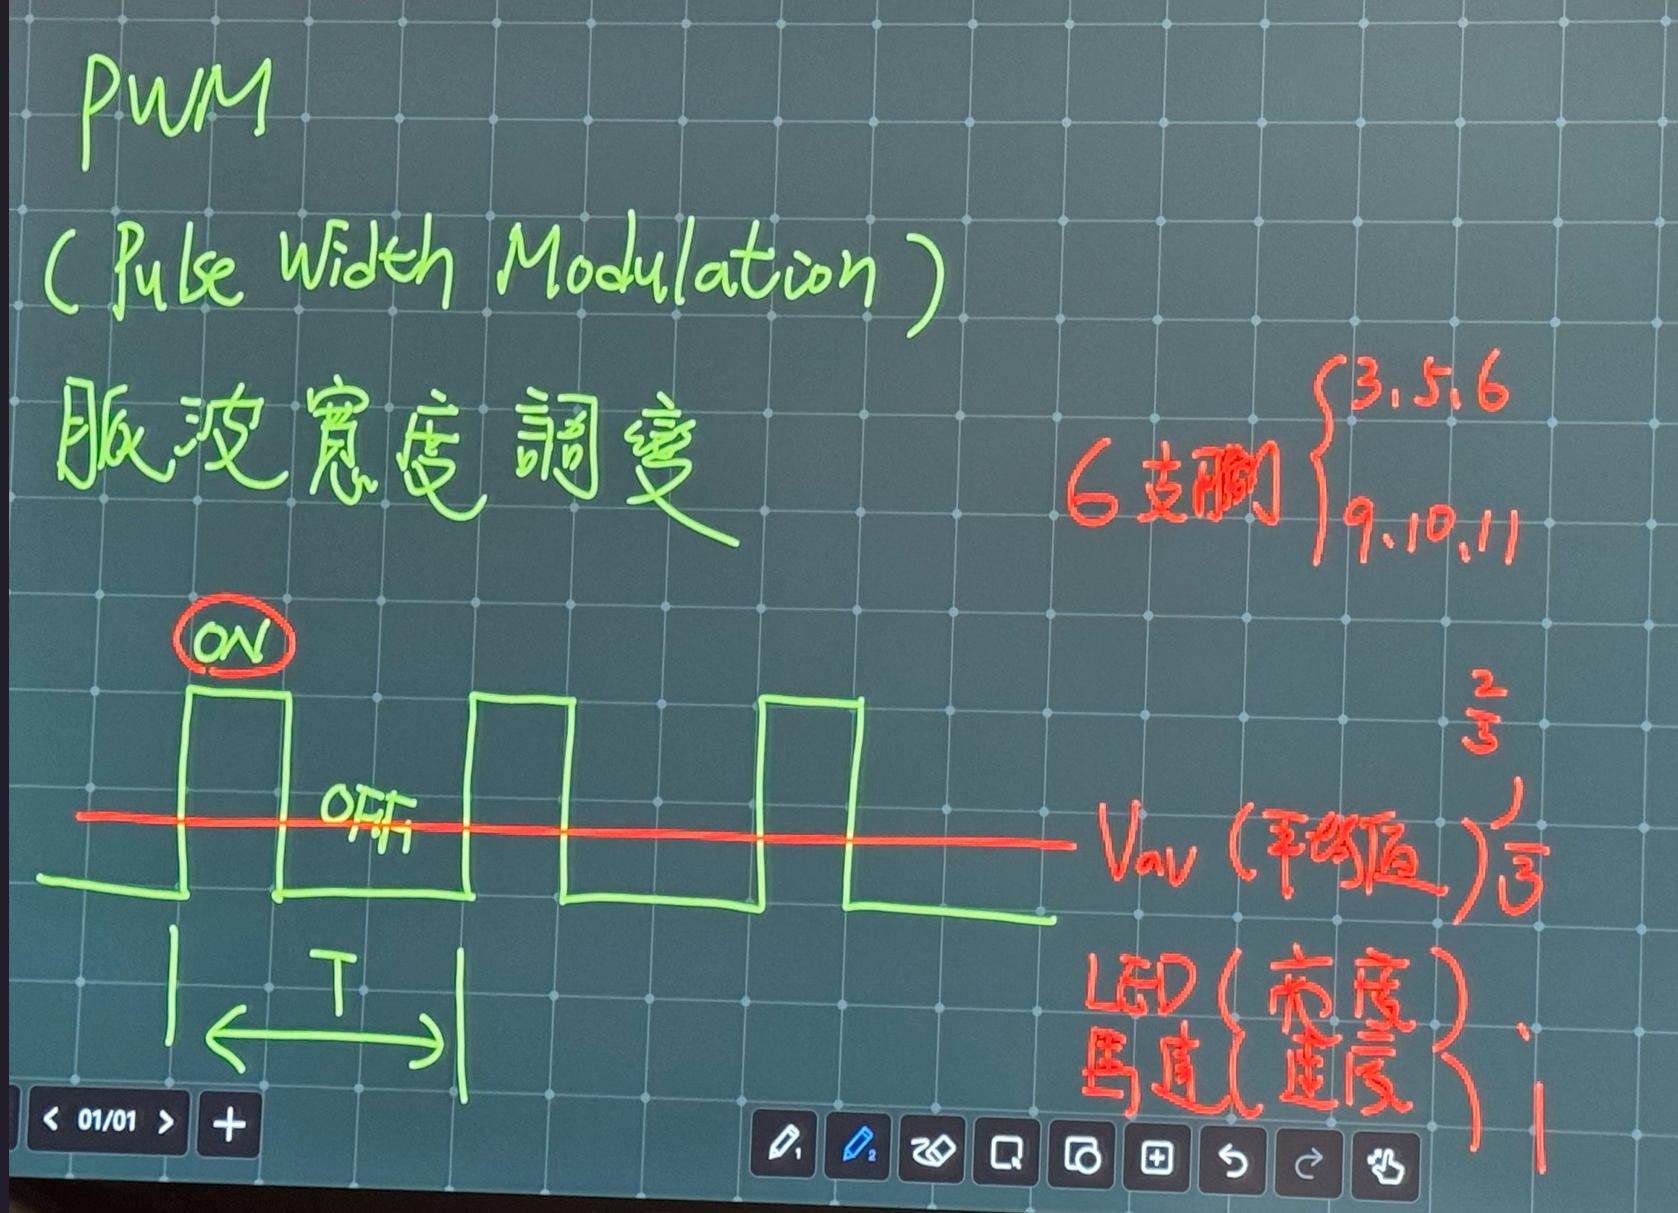 PWM
(Pulse Width Modulation)
脈波寬度調變
6支腳
3、5、6
9、10、11
ON
OFF
T
2/3
Vav (平均值) 1/3
LED (亮度)
馬達 (速度)
01/01
1
2